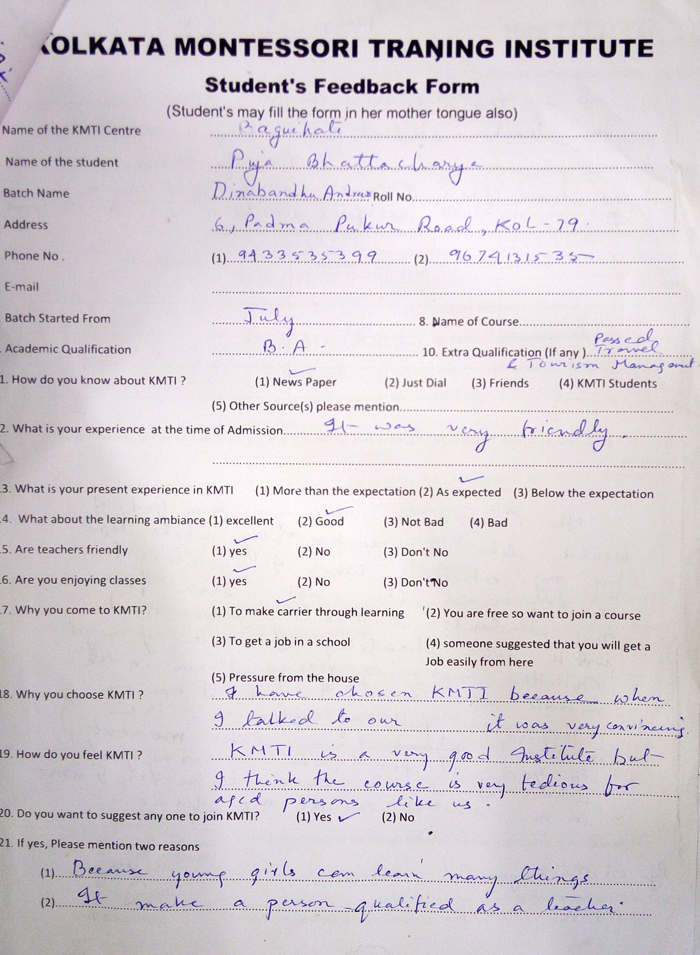 KOLKATA MONTESSORI TRANING INSTITUTE
Student's Feedback Form
(Student's may fill the form in her mother tongue also)
Name of the KMTI Centre Baguihati
Name of the student Puja Bhattacharya
Batch Name Dinabandhu Andrus Roll No.
Address 6, Padma Pukur Road, KOL - 79.
Phone No. (1) 9433535399 (2) 9674131535
E-mail
Batch Started From July 8. Name of Course
Academic Qualification B.A. 10. Extra Qualification (If any) Passed Travel
& Tourism Managment
1. How do you know about KMTI ? (1) News Paper (2) Just Dial (3) Friends (4) KMTI Students
(5) Other Source(s) please mention
2. What is your experience at the time of Admission It was very friendly.
3. What is your present experience in KMTI (1) More than the expectation (2) As expected (3) Below the expectation
4. What about the learning ambiance (1) excellent (2) Good (3) Not Bad (4) Bad
5. Are teachers friendly (1) yes (2) No (3) Don't No
6. Are you enjoying classes (1) yes (2) No (3) Don't No
7. Why you come to KMTI? (1) To make carrier through learning (2) You are free so want to join a course
(3) To get a job in a school (4) someone suggested that you will get a
Job easily from here
(5) Pressure from the house
18. Why you choose KMTI ? I have chosen KMTI because when
I talked to our it was very convincing.
19. How do you feel KMTI ? KMTI is a very good Institute but
I think the course is very tedious for
aged persons like us.
20. Do you want to suggest any one to join KMTI? (1) Yes (2) No
21. If yes, Please mention two reasons
(1) Because young girls can learn many things
(2) It make a person qualified as a teacher.